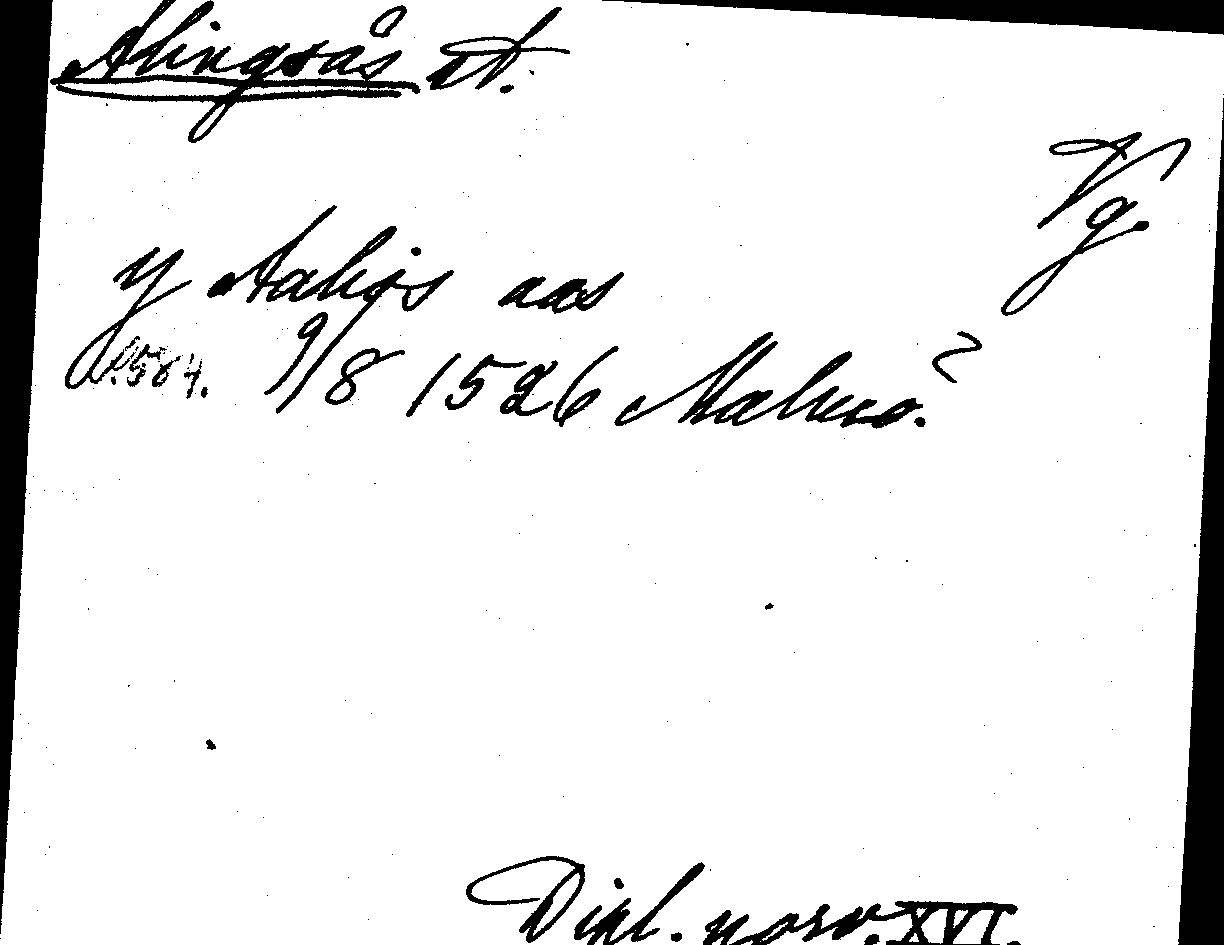 Alingsås st.
Vg.
y Aaligs aas
s. 584. 9/8 1526 Malmö?
Dipl. norv. XVI.